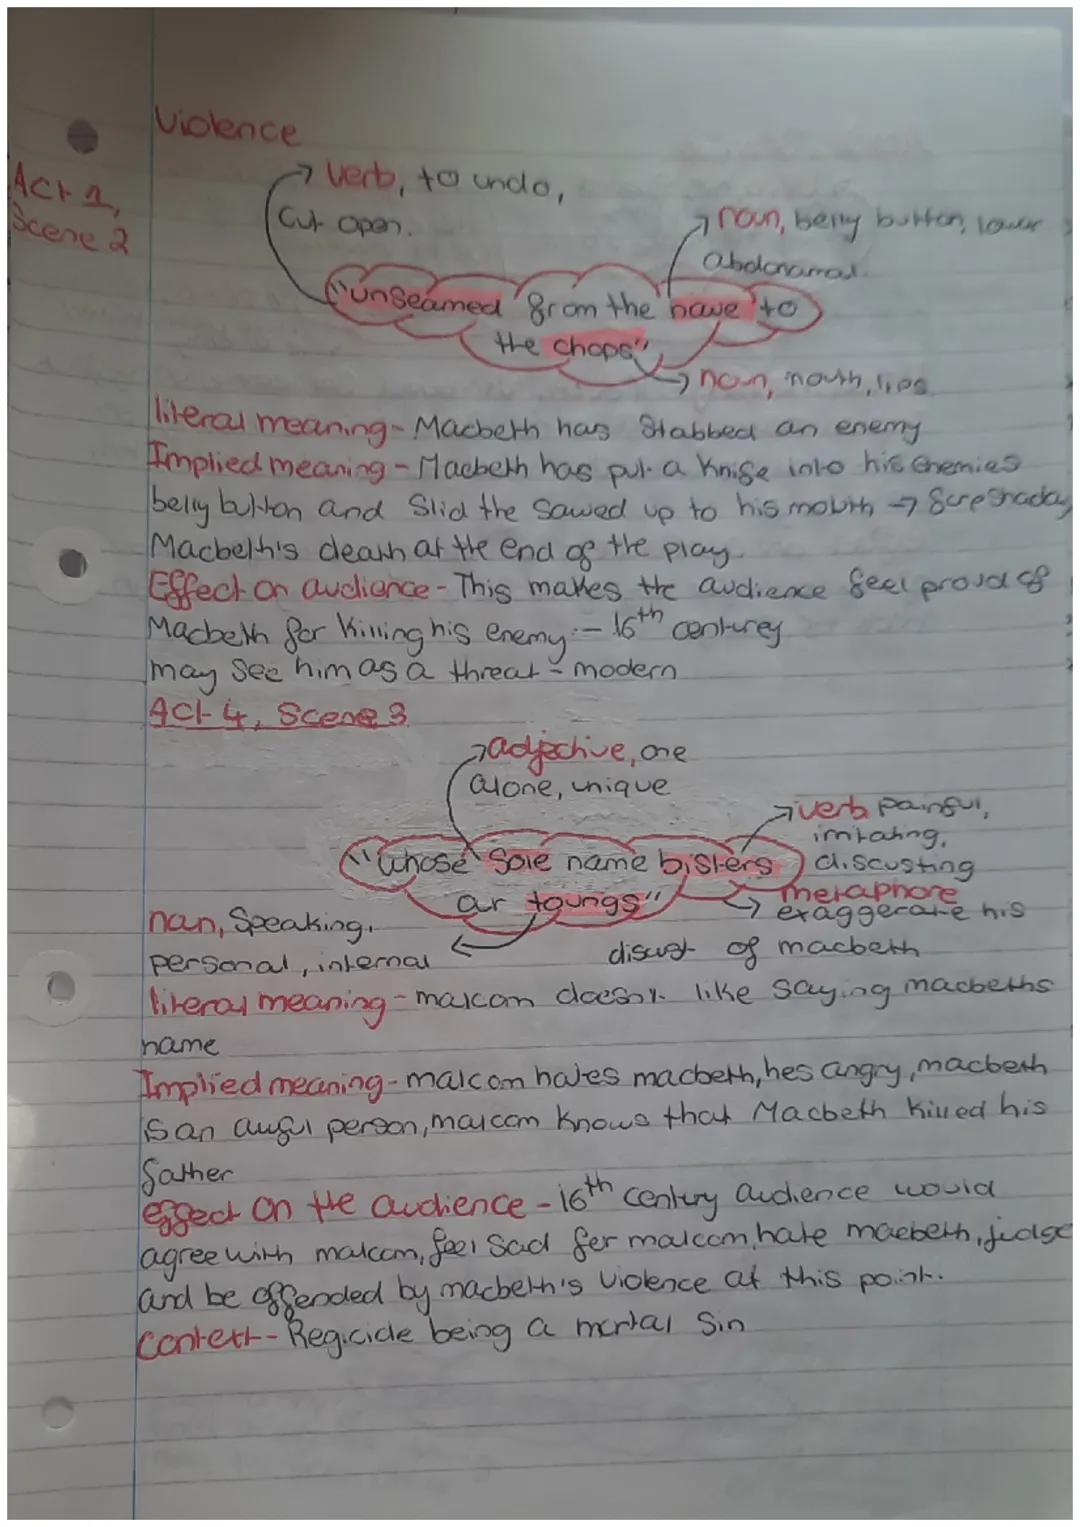 Violence
Act 1,
Scene 2
→ verb, to undo,
cut open.
→ noun, belly button, lower
abdonamal.
"unseamed from the nave to
the chops"
→ noun, mouth, lips
literal meaning - Macbeth has stabbed an enemy
Implied meaning - Macbeth has put a knife into his enemies
belly button and slid the sawed up to his mouth → foreshaday
Macbeth's death at the end of the play.
Effect on audience - This makes the audience feel proud of
Macbeth for killing his enemy. - 16th centurey
may see him as a threat - modern
Act 4, Scene 3
→ adjective, one
alone, unique
→ verb painful,
irritating,
discusting
"whose sole name blisters
our toungs"
metaphore
→ exaggerate his
discust of macbeth
noun, speaking,
personal, internal
literal meaning - malcom doesn't like saying macbeths
name
Implied meaning - malcom hates macbeth, hes angry, macbeth
is an awful person, malcom knows that Macbeth killed his
father
effect on the audience - 16th century audience would
agree with malcom, feel sad for malcom, hate macbeth, judge
and be offended by macbeth's violence at this point.
context - Regicide being a mortal sin